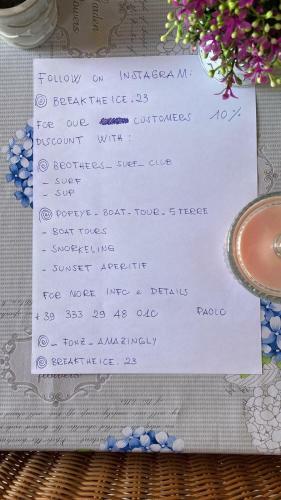 FOLLOW ON INSTAGRAM:
@ BREAKTHEICE.23
FOR OUR CUSTOMERS 10%
DISCOUNT WITH:
@ BROTHERS_SURF_CLUB
- SURF
- SUP
@ POPEYE_BOAT_TOUR_5TERRE
- BOAT TOURS
- SNORKELING
- SUNSET APERITIF
FOR MORE INFO & DETAILS
+39 333 29 48 010 PAOLO
@_FONZ_AMAZINGLY
@ BREAKTHEICE.23